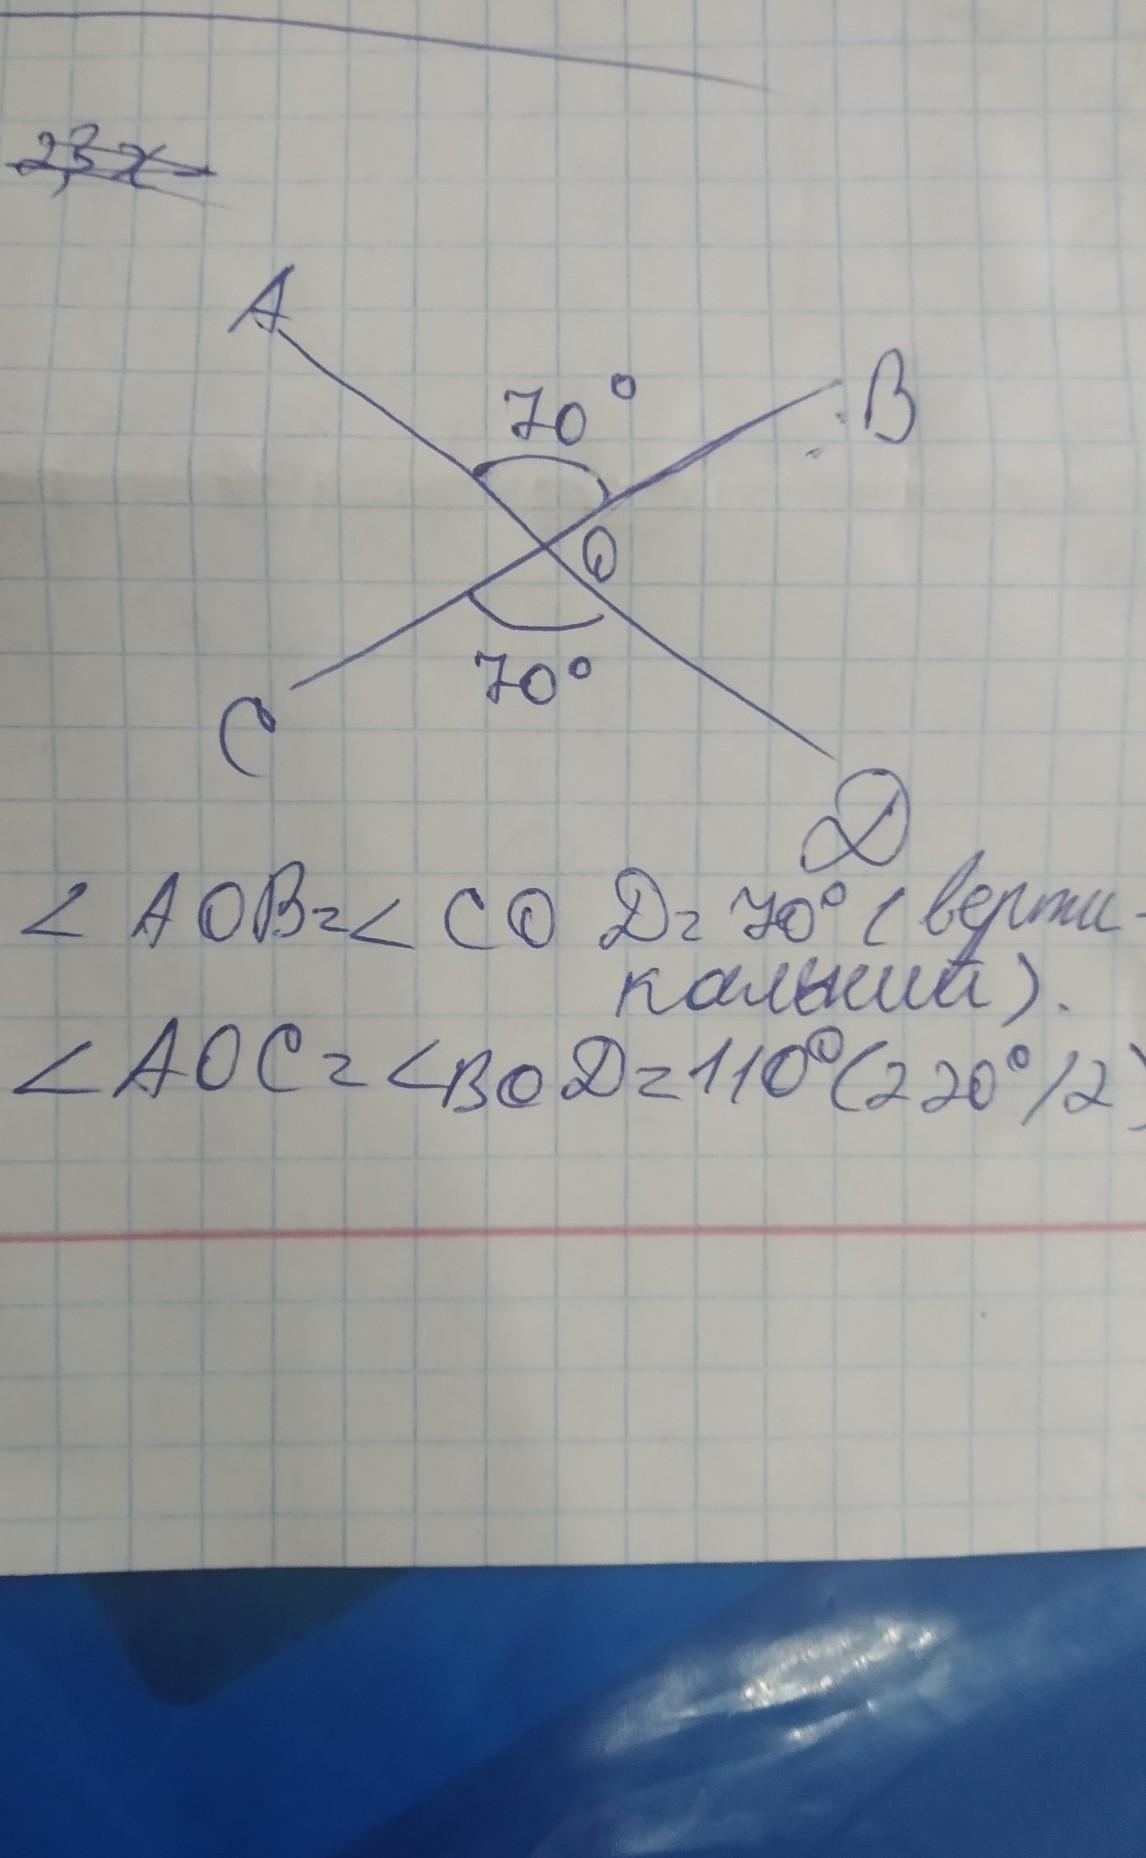 2,3x-
A
70°
B
O
70°
C
D
< AOB=< COD= 70° (верти-
кальный).
<AOC=<BOD=110°(220°/2)